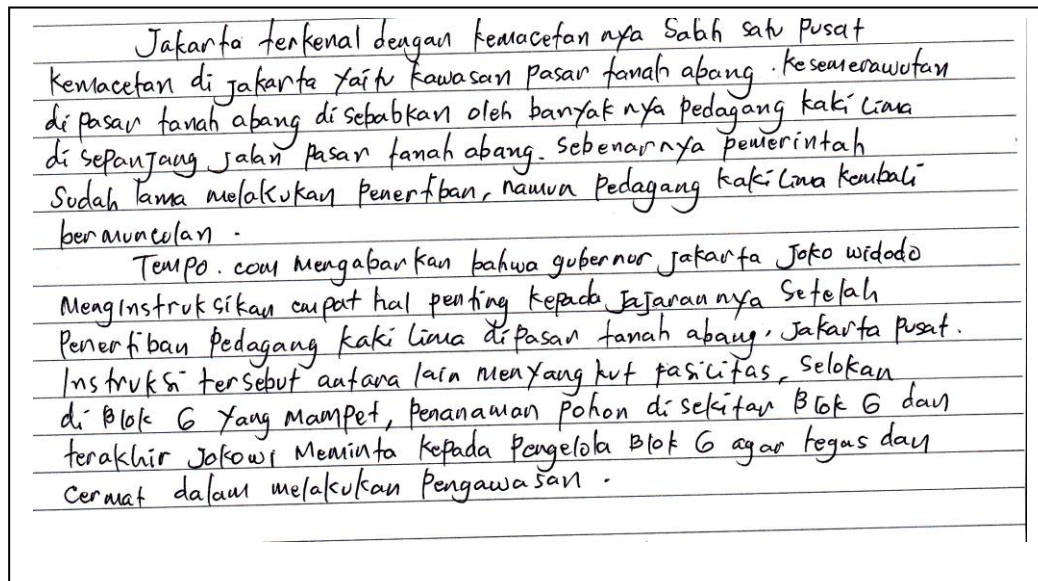 Jakarta terkenal dengan kemacetan nya Salah satu Pusat
kemacetan di Jakarta Yaitu kawasan Pasar tanah abang. kesemerawutan
di pasar tanah abang di sebabkan oleh banyak nya Pedagang kaki Lima
di sepanjang jalan Pasar tanah abang. Sebenarnya pemerintah
Sudah lama melakukan Penertiban, namun Pedagang kaki Lima kembali
ber munculan.
Tempo.com mengabarkan bahwa gubernur Jakarta Joko widodo
MengInstruksikan empat hal penting kepada Jajaran nya Setelah
Penertiban Pedagang kaki Lima di Pasar tanah abang, Jakarta Pusat.
Instruksi tersebut antara lain menyangkut fasilitas, Selokan
di Blok G Yang Mampet, Penanaman Pohon di sekitar Blok G dan
terakhir Jokowi Meminta kepada Pengelola Blok G agar tegas dan
Cermat dalam melakukan Pengawasan.